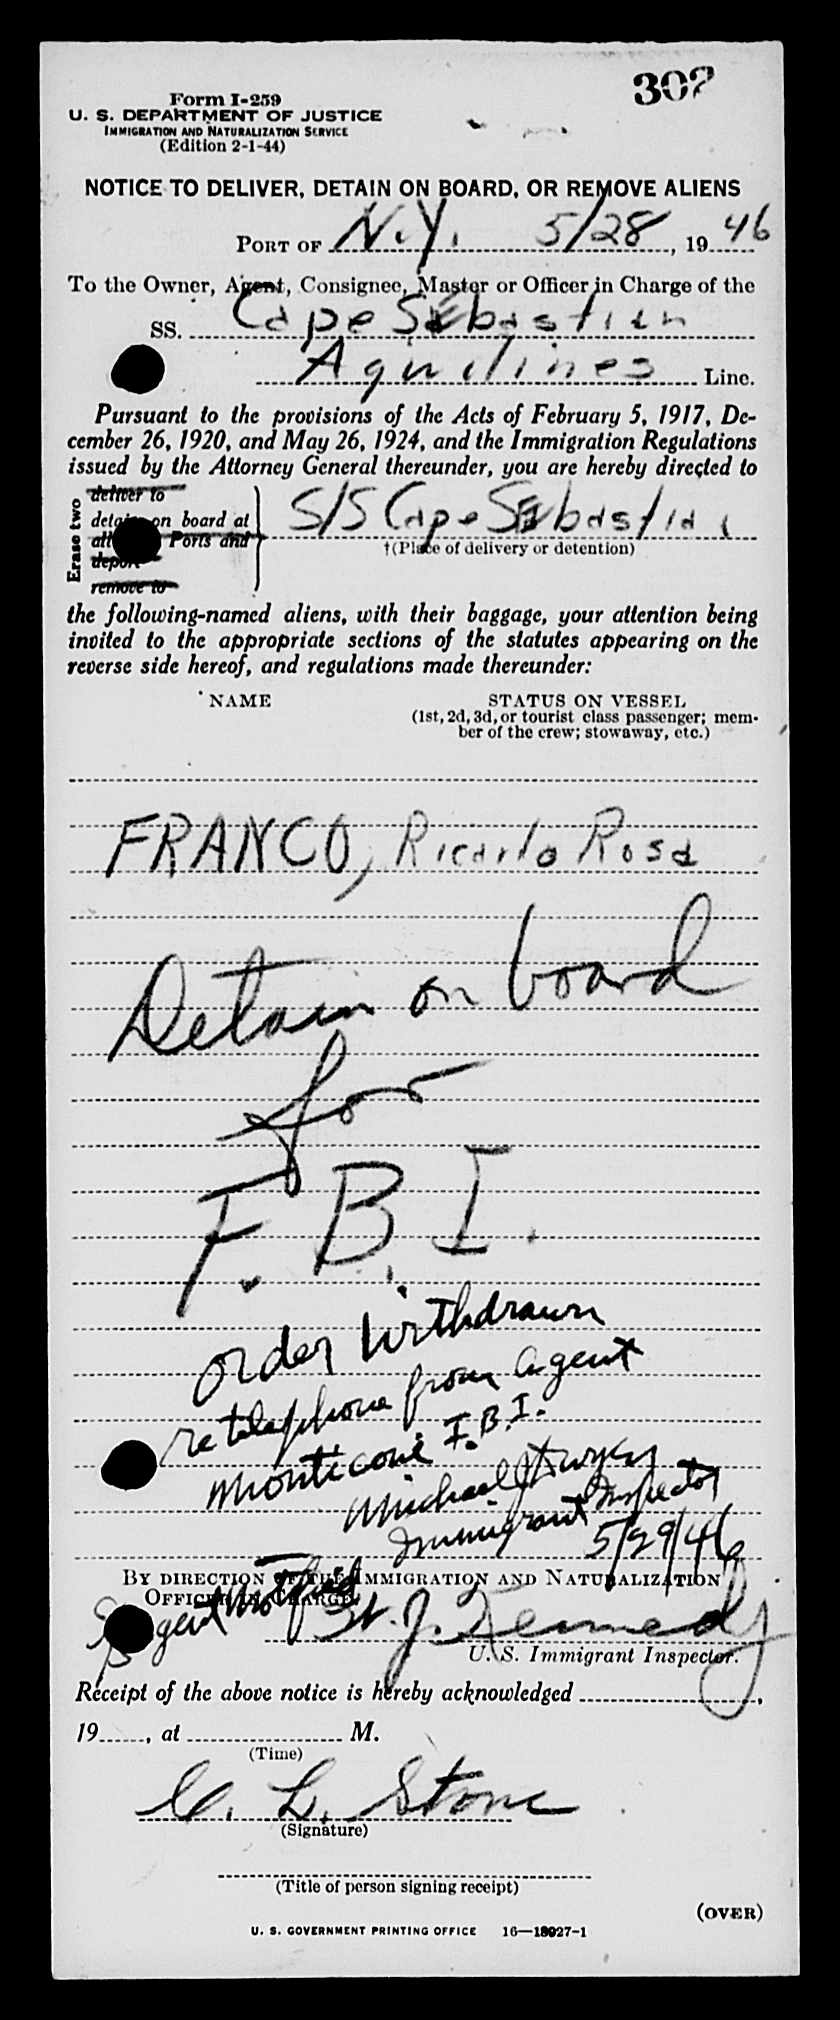 302
Form I-259
U. S. DEPARTMENT OF JUSTICE
IMMIGRATION AND NATURALIZATION SERVICE
(Edition 2-1-44)
NOTICE TO DELIVER, DETAIN ON BOARD, OR REMOVE ALIENS
PORT OF N.Y. 5/28, 1946
To the Owner, Agent, Consignee, Master or Officer in Charge of the
SS. Cape Sebastian
Aquilines Line.
Pursuant to the provisions of the Acts of February 5, 1917, De-
cember 26, 1920, and May 26, 1924, and the Immigration Regulations
issued by the Attorney General thereunder, you are hereby directed to
Erase two
deliver to
detain on board at
all Ports and
deport
remove to
S/S Cape Sebastian
†(Place of delivery or detention)
the following-named aliens, with their baggage, your attention being
invited to the appropriate sections of the statutes appearing on the
reverse side hereof, and regulations made thereunder:
NAME STATUS ON VESSEL
(1st, 2d, 3d, or tourist class passenger; mem-
ber of the crew; stowaway, etc.)
FRANCO, Ricardo Rosa
Detain on board
for
F.B.I.
order withdrawn
re telephone from agent
Monticone F.B.I.
Michael J
Immigrant Inspector
5/29/46
BY DIRECTION OF THE IMMIGRATION AND NATURALIZATION
OFFICER IN CHARGE,
agent notified
J. Kennedy
U. S. Immigrant Inspector.
Receipt of the above notice is hereby acknowledged ,
19 , at M.
(Time)
C. L. Stone
(Signature)
(Title of person signing receipt)
(OVER)
U. S. GOVERNMENT PRINTING OFFICE 16—18027-1